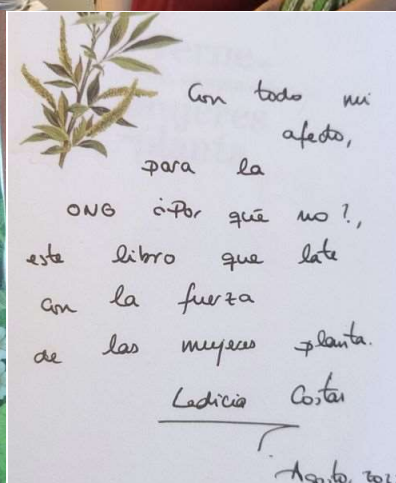 Con todo mi
afecto,
para la
ONG ¿Por qué no?,
este libro que late
con la fuerza
de las mujeres planta.
Ledicia Costas
Agosto, 202